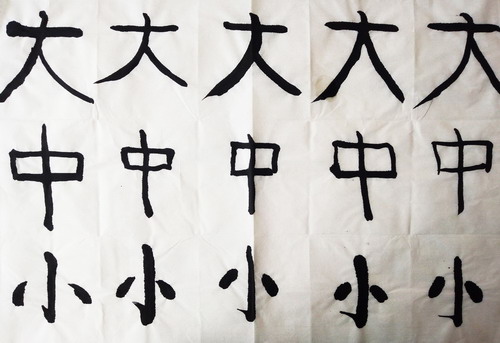 大大大大大
中中中中中
小小小小小